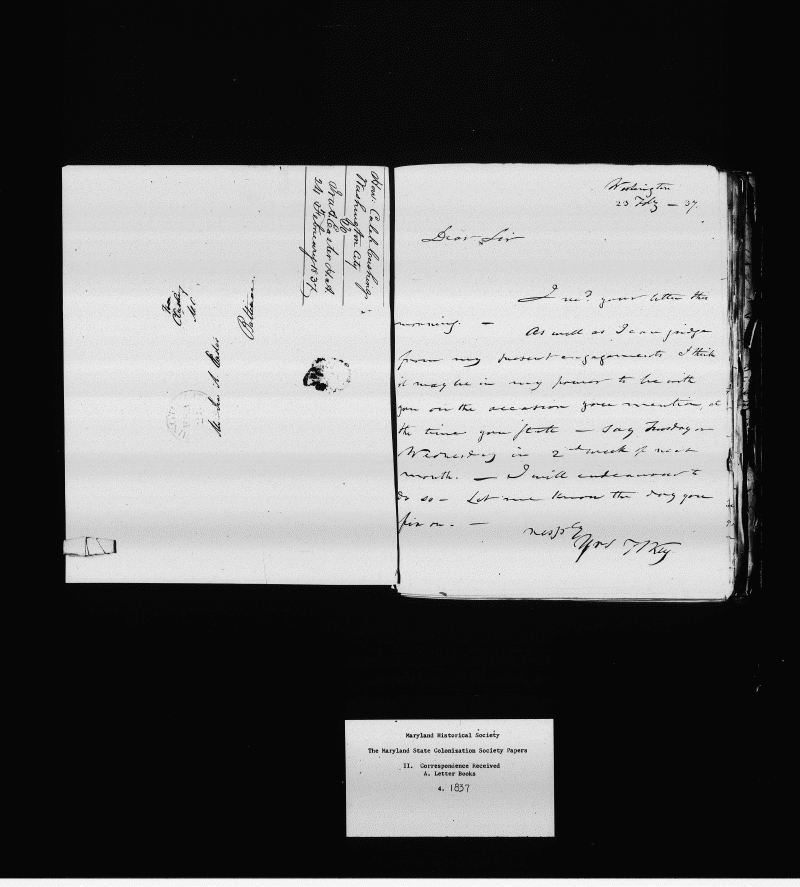 Hon: Caleb Cushing;
Washington City
to
Ira A. Easter H.A.
24 February 1837.
Mr. Ira A. Easter
Baltimore.
Washington
23 Feby — 37.
Dear Sir
I recd. your letter this
morning. — As well as I can judge
from my present engagements I think
it may be in my power to be with
you on the occasion you mention, at
the time you state — say Tuesday or
Wednesday in 2d week of next
month. — I will endeavour to
do so — Let me know the day you
fix on. —
respfly
Yrs F S Key
Maryland Historical Society
The Maryland State Colonization Society Papers
II. Correspondence Received
A. Letter Books
4. 1837